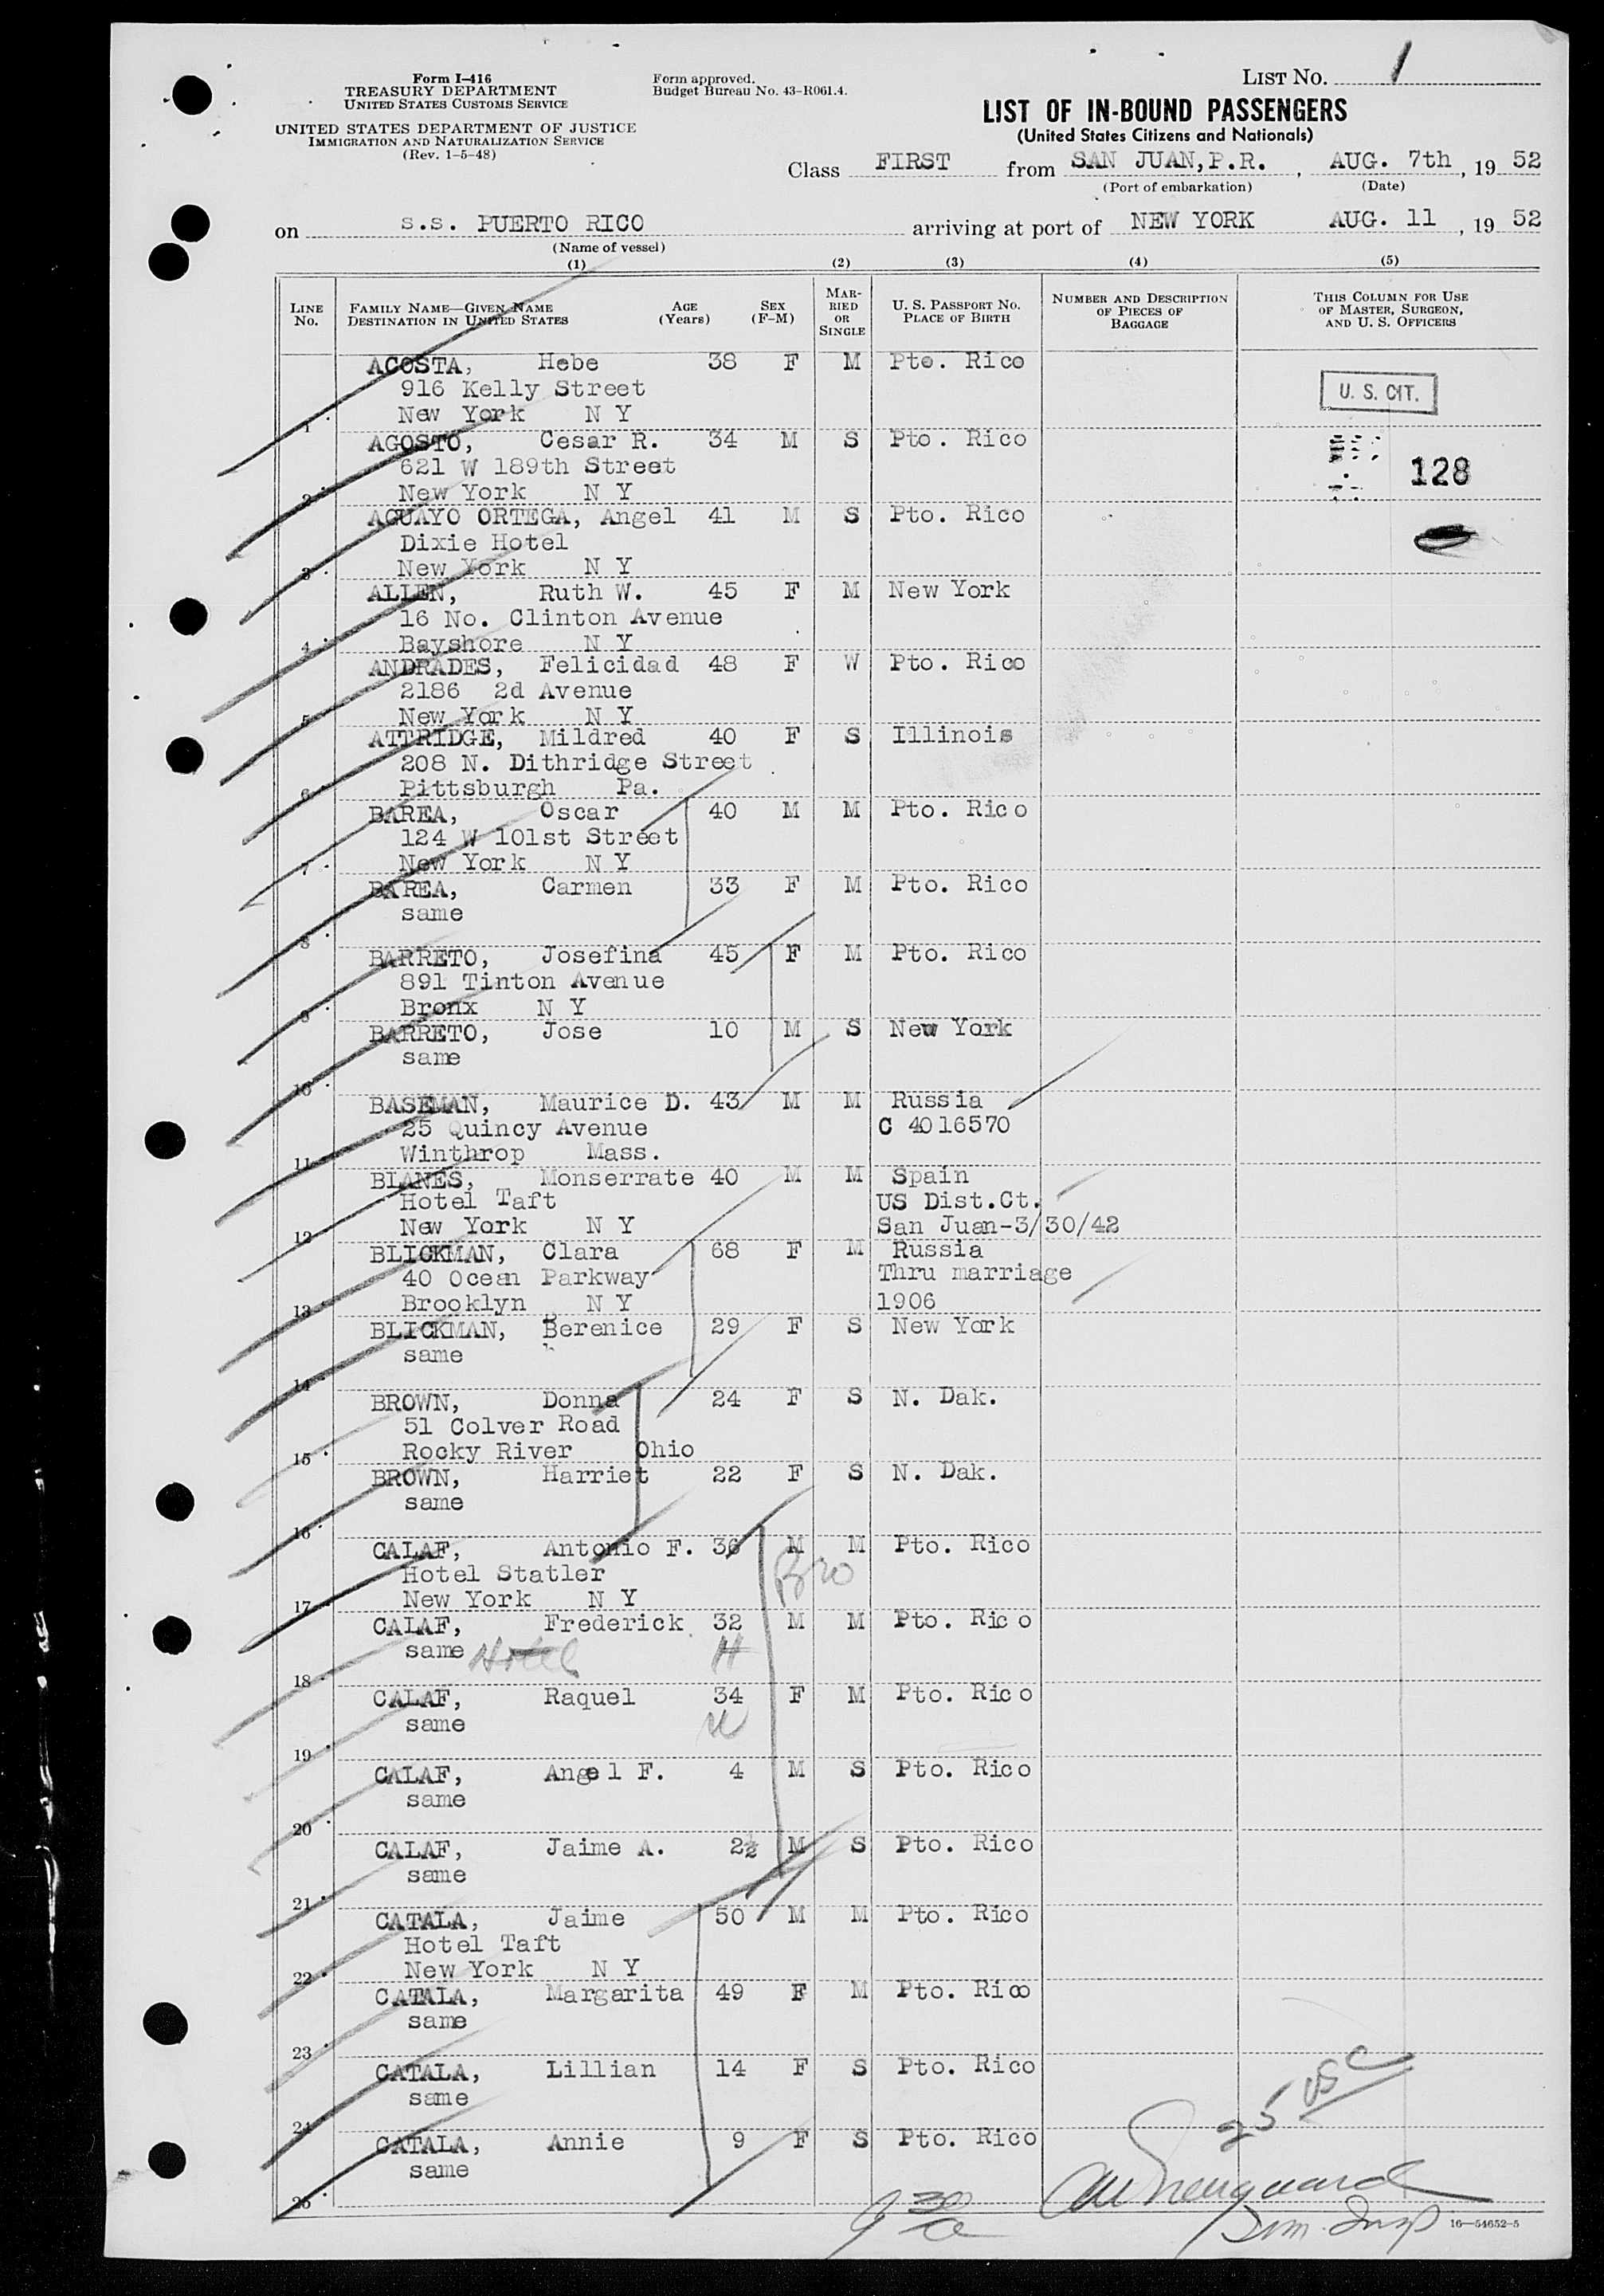 LIST NO. 1
Form I-416
TREASURY DEPARTMENT
UNITED STATES CUSTOMS SERVICE
Form approved.
Budget Bureau No. 43-R061.4.
UNITED STATES DEPARTMENT OF JUSTICE
IMMIGRATION AND NATURALIZATION SERVICE
(Rev. 1-5-48)
LIST OF IN-BOUND PASSENGERS
(United States Citizens and Nationals)
Class FIRST from SAN JUAN, P.R., AUG. 7th, 19 52
(Port of embarkation) (Date)
on s.s. PUERTO RICO arriving at port of NEW YORK AUG. 11, 19 52
(Name of vessel)
(1) (2) (3) (4) (5)
LINE No. FAMILY NAME—GIVEN NAME DESTINATION IN UNITED STATES AGE (Years) SEX (F-M) MARRIED OR SINGLE U. S. PASSPORT No. PLACE OF BIRTH NUMBER AND DESCRIPTION OF PIECES OF BAGGAGE THIS COLUMN FOR USE OF MASTER, SURGEON, AND U. S. OFFICERS
ACOSTA, Hebe 38 F M Pto. Rico
916 Kelly Street U. S. CIT.
1 New York N Y
AGOSTO, Cesar R. 34 M S Pto. Rico
621 W 189th Street 128
2 New York N Y
AGUAYO ORTEGA, Angel 41 M S Pto. Rico
Dixie Hotel
3 New York N Y
ALLEN, Ruth W. 45 F M New York
16 No. Clinton Avenue
4 Bayshore N Y
ANDRADES, Felicidad 48 F W Pto. Rico
2186 2d Avenue
5 New York N Y
ATTRIDGE, Mildred 40 F S Illinois
208 N. Dithridge Street
6 Pittsburgh Pa.
BAREA, Oscar 40 M M Pto. Rico
124 W 101st Street
7 New York N Y
BAREA, Carmen 33 F M Pto. Rico
same
8
BARRETO, Josefina 45 F M Pto. Rico
891 Tinton Avenue
9 Bronx N Y
BARRETO, Jose 10 M S New York
same
10
BASEMAN, Maurice D. 43 M M Russia
25 Quincy Avenue C 4016570
11 Winthrop Mass.
BLANES, Monserrate 40 M M Spain
Hotel Taft US Dist.Ct.
12 New York N Y San Juan-3/30/42
BLICKMAN, Clara 68 F M Russia
40 Ocean Parkway Thru marriage
13 Brooklyn N Y 1906
BLICKMAN, Berenice 29 F S New York
same
14
BROWN, Donna 24 F S N. Dak.
51 Colver Road
15 Rocky River Ohio
BROWN, Harriet 22 F S N. Dak.
same
16
CALAF, Antonio F. 36 M M Pto. Rico
Hotel Statler Bro
17 New York N Y
CALAF, Frederick 32 M M Pto. Rico
same Hotel H
18
CALAF, Raquel 34 F M Pto. Rico
same W
19
CALAF, Angel F. 4 M S Pto. Rico
same
20
CALAF, Jaime A. 2½ M S Pto. Rico
same
21
CATALA, Jaime 50 M M Pto. Rico
Hotel Taft
22 New York N Y
CATALA, Margarita 49 F M Pto. Rico
same
23
CATALA, Lillian 14 F S Pto. Rico
same
24
25 USC
CATALA, Annie 9 F S Pto. Rico
same
25
9 30/a
Imm. Insp
16—54652-5